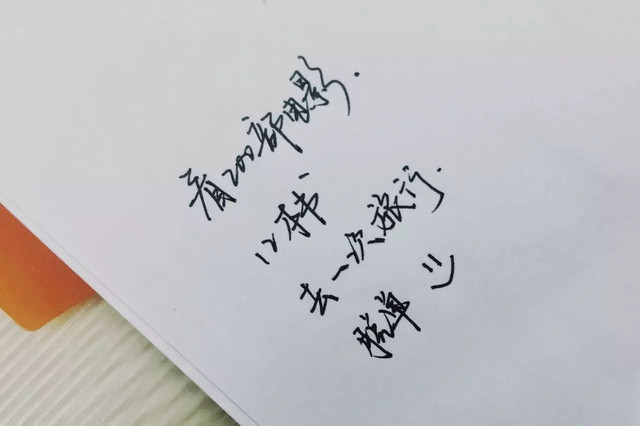 看200部电影.
12本书、
去一次旅行.
脱单 =)